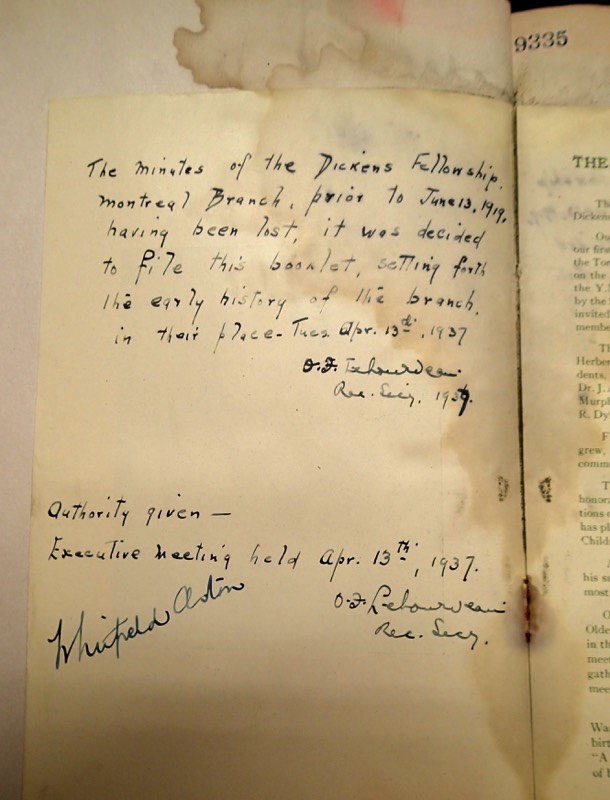 9335
The minutes of the Dickens Fellowship,
Montreal Branch, prior to June 13, 1919,
having been lost, it was decided
to file this booklet, setting forth
the early history of the branch,
in their place - Tues Apr. 13th, 1937
O.F. Lebourveau
Rec. Secy, 1937.
Authority given —
Executive meeting held Apr. 13th, 1937.
O.F. Lebourveau
Rec. Secy.
Whitfield Aston
THE
Th
Dickens
Ou
our firs
the Tor
on the
the Y.
by the
invited
membe
Th
Herber
dents,
Dr. J.
Murph
R. Dy
F
grew,
comm
T
honora
tions o
has pl
Childr
his su
most
O
Olde
in th
meet
gath
mee
Wa
birt
"A
of b